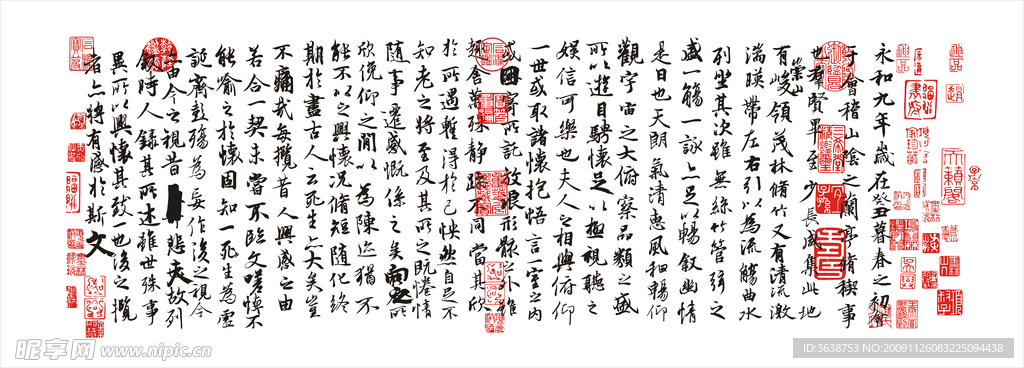 永和九年歲在癸丑暮春之初會
于會稽山陰之蘭亭脩禊事
也羣賢畢至少長咸集此地
有崇山峻領茂林脩竹又有清流激
湍暎帶左右引以為流觴曲水
列坐其次雖無絲竹管弦之
盛一觴一詠亦足以暢叙幽情
是日也天朗氣清惠風和暢仰
觀宇宙之大俯察品類之盛
所以遊目騁懷足以極視聽之
娛信可樂也夫人之相與俯仰
一世或取諸懷抱悟言一室之內
或因寄所託放浪形骸之外雖
趣舍萬殊靜躁不同當其欣
於所遇暫得於己怏然自足不
知老之將至及其所之既惓情
隨事遷感慨係之矣向之所
欣俛仰之閒以為陳迹猶不
能不以之興懷況脩短隨化終
期於盡古人云死生亦大矣豈
不痛哉每攬昔人興感之由
若合一契未嘗不臨文嗟悼不
能喻之於懷固知一死生為虛
誕齊彭殤為妄作後之視今
亦由今之視昔悲夫故列
敘時人錄其所述雖世殊事
異所以興懷其致一也後之攬
者亦將有感於斯文
昵享网 www.nipic.cn
ID:3638753 NO:20091126083225094438